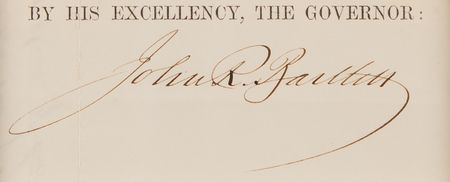 BY HIS EXCELLENCY, THE GOVERNOR:
John R. Bartlett